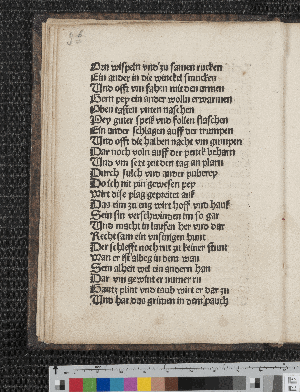 Von wispeln vnd zu samen rucken
Ein ander in die winckel smucken
Vnd offt vm fahen mit den armen
Gern pey ein ander wolln erwarmen
Oben tasten vnten naschen
Pey guter speis vnd follen flaschen
Ein ander schlagen auff der trumpen
Vnd offt die halben nacht vm gumpen
Dar noch voln auff der penck
Vnd vm setz zeit den tag an plarn
Durch solch vnd ander puberey
Do ich nit pin gewesen pey
Wirt dise plag gepreitet auß
Das eim zu eng wirt hoff vnd hauß
Sein sin verschwinden im so gar
Vnd macht in lauffen her vnd dar
Recht sam ein vnsinigen hunt
Der schlefft noch rut zu keiner stunt
Wan er ist albeg in dem wan
Sein alheit wel ein andern han
Dar vm gewint er numer ru
Gantz plint vnd taub wirt er dar zu
Vnd hat das grimen in dem pauch